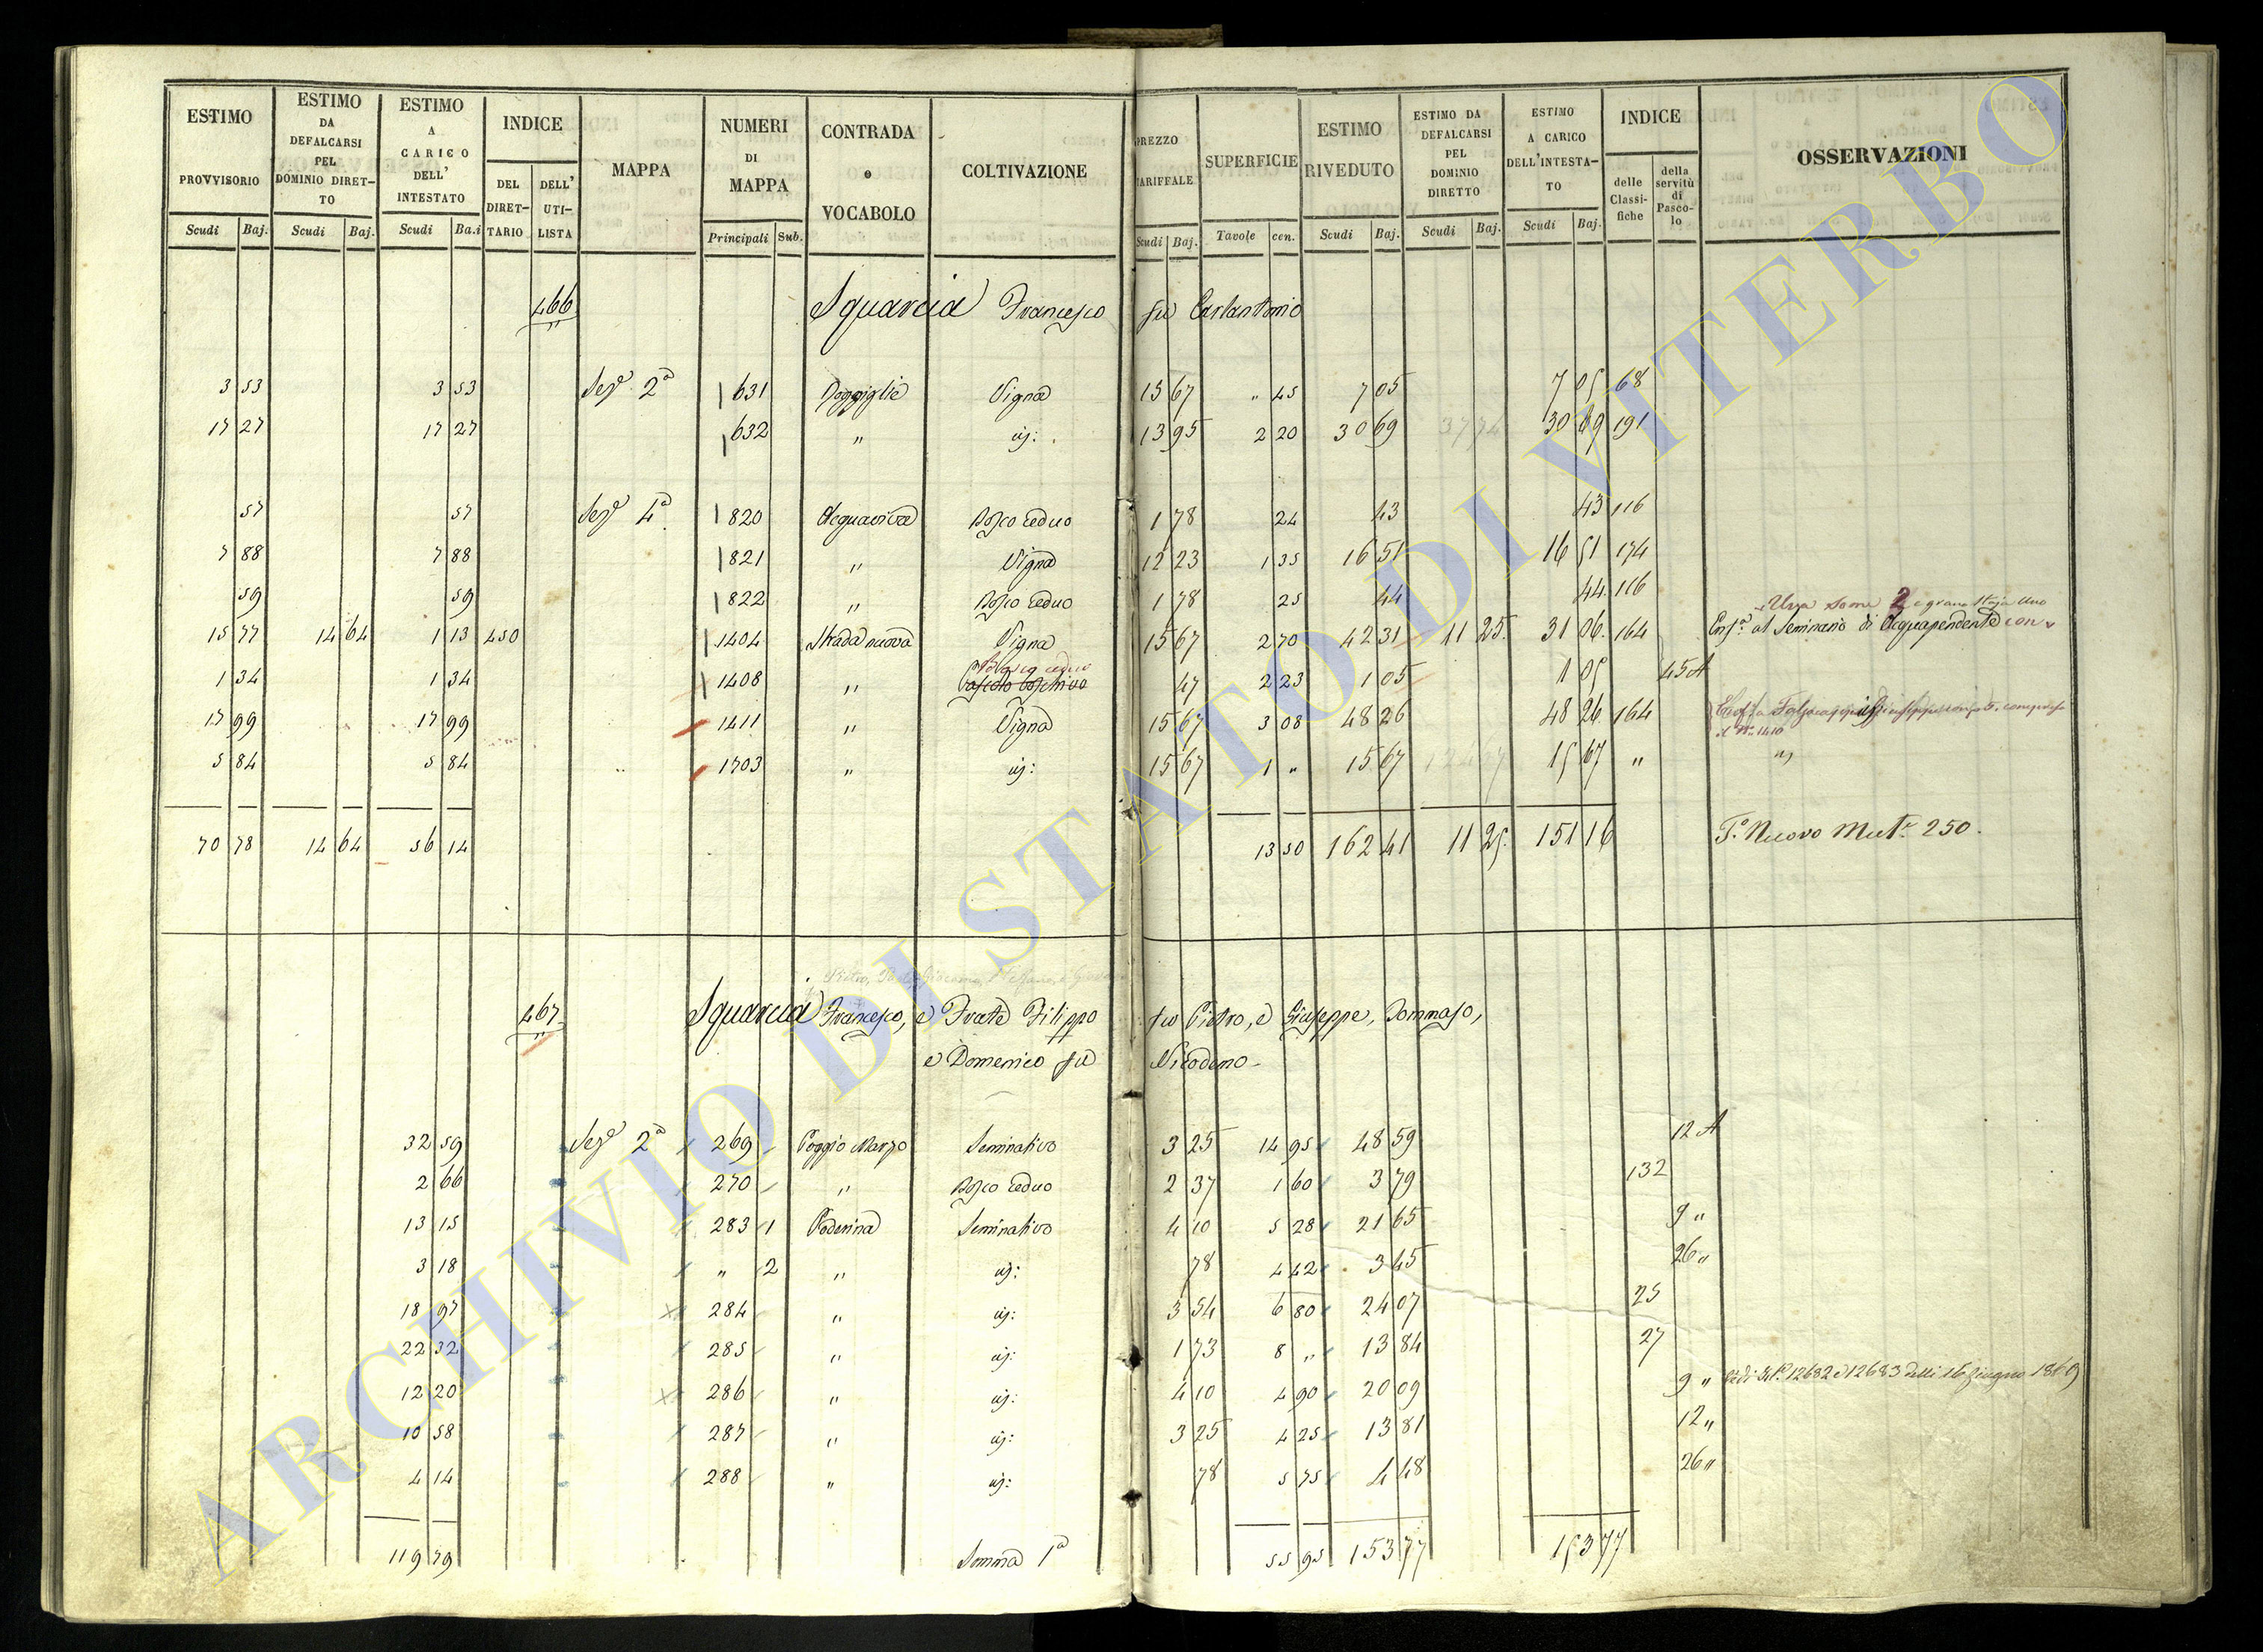 ESTIMO PROVVISORIO Scudi Baj.
ESTIMO DA DEFALCARSI PEL DOMINIO DIRET-TO Scudi Baj.
ESTIMO A CARICO DELL' INTESTATO Scudi Ba.i
INDICE DEL DIRET-TARIO DELL' UTI-LISTA
MAPPA
NUMERI DI MAPPA Principali Sub.
CONTRADA o VOCABOLO
COLTIVAZIONE
PREZZO TARIFFALE Scudi Baj.
SUPERFICIE Tavole cen.
ESTIMO RIVEDUTO Scudi Baj.
ESTIMO DA DEFALCARSI PEL DOMINIO DIRETTO Scudi Baj.
ESTIMO A CARICO DELL'INTESTA-TO Scudi Baj.
INDICE delle Classi-fiche della servitù di Pasco-lo
OSSERVAZIONI
466 Squarcia Francesco fu Carlantonio
3 53 3 53 Sez.e 2a 631 Poggiglie Vigna 15 67 " 45 7 05 7 05 68
17 27 17 27 632 " id: 13 95 2 20 30 69 30 69 191
57 57 Sez.e 4a 820 Acquaviva Bosco ceduo 1 78 24 43 43 116
7 88 7 88 821 " Vigna 12 23 1 35 16 51 16 51 174
59 59 822 " Bosco ceduo 1 78 25 44 44 116
15 77 14 64 1 13 450 1404 Strada nuova Vigna 15 67 2 70 42 31 11 25 31 06 164 Enf.a al Seminario di Acquapendente con
Uva some 2 e grano staja uno
1 34 1 34 1408 " Pascolo boschivo Bosco ceduo 47 2 23 1 05 1 05 45 A
17 99 17 99 1411 " Vigna 15 67 3 08 48 26 48 26 164
il N.o 1410
5 84 5 84 1703 " id: 15 67 1 " 15 67 15 67 "
70 78 14 64 56 14 13 50 162 41 11 25 151 16 T.o Nuovo Mut.e 250.
467 Squarcia Francesco, e Frate Filippo fu Pietro, e Giuseppe, Tommaso,
e Domenico fu Nicodemo
32 59 Sez.e 2a 269 Poggio Marzo Seminativo 3 25 14 95 48 59 12 A
2 66 270 " Bosco ceduo 2 37 1 60 3 79 132
13 15 283 1 Poderina Seminativo 4 10 5 28 21 65 9 "
3 18 " 2 " id: 78 4 42 3 45 26 "
18 97 284 " id: 3 54 6 80 24 07 25
22 32 285 " id: 1 73 8 " 13 84 27
12 20 286 " id: 4 10 4 90 20 09 9 " Vedi 12682 e 12683 delli 16 Giugno 1869
10 58 287 " id: 3 25 4 25 13 81 12 "
4 14 288 " id: 78 5 75 4 48 26 "
119 79 Somma 1a 55 95 153 77 153 77
ARCHIVIO DI STATO DI VITERBO